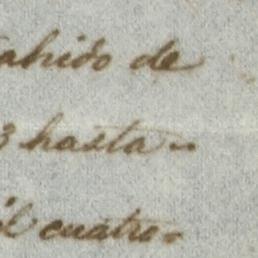 ahido de
3 hasta
il cuatro